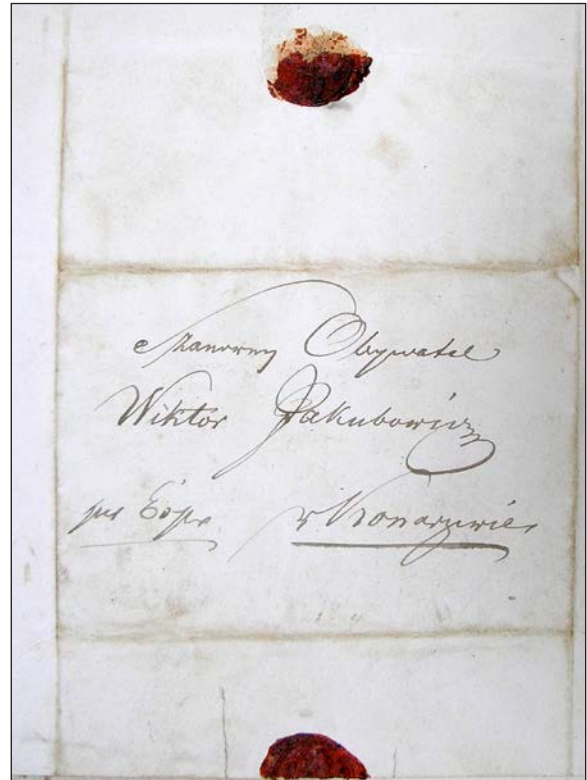 Szanowny Obywatel
Wiktor Jakubowicz
per Expr w Konarzewie